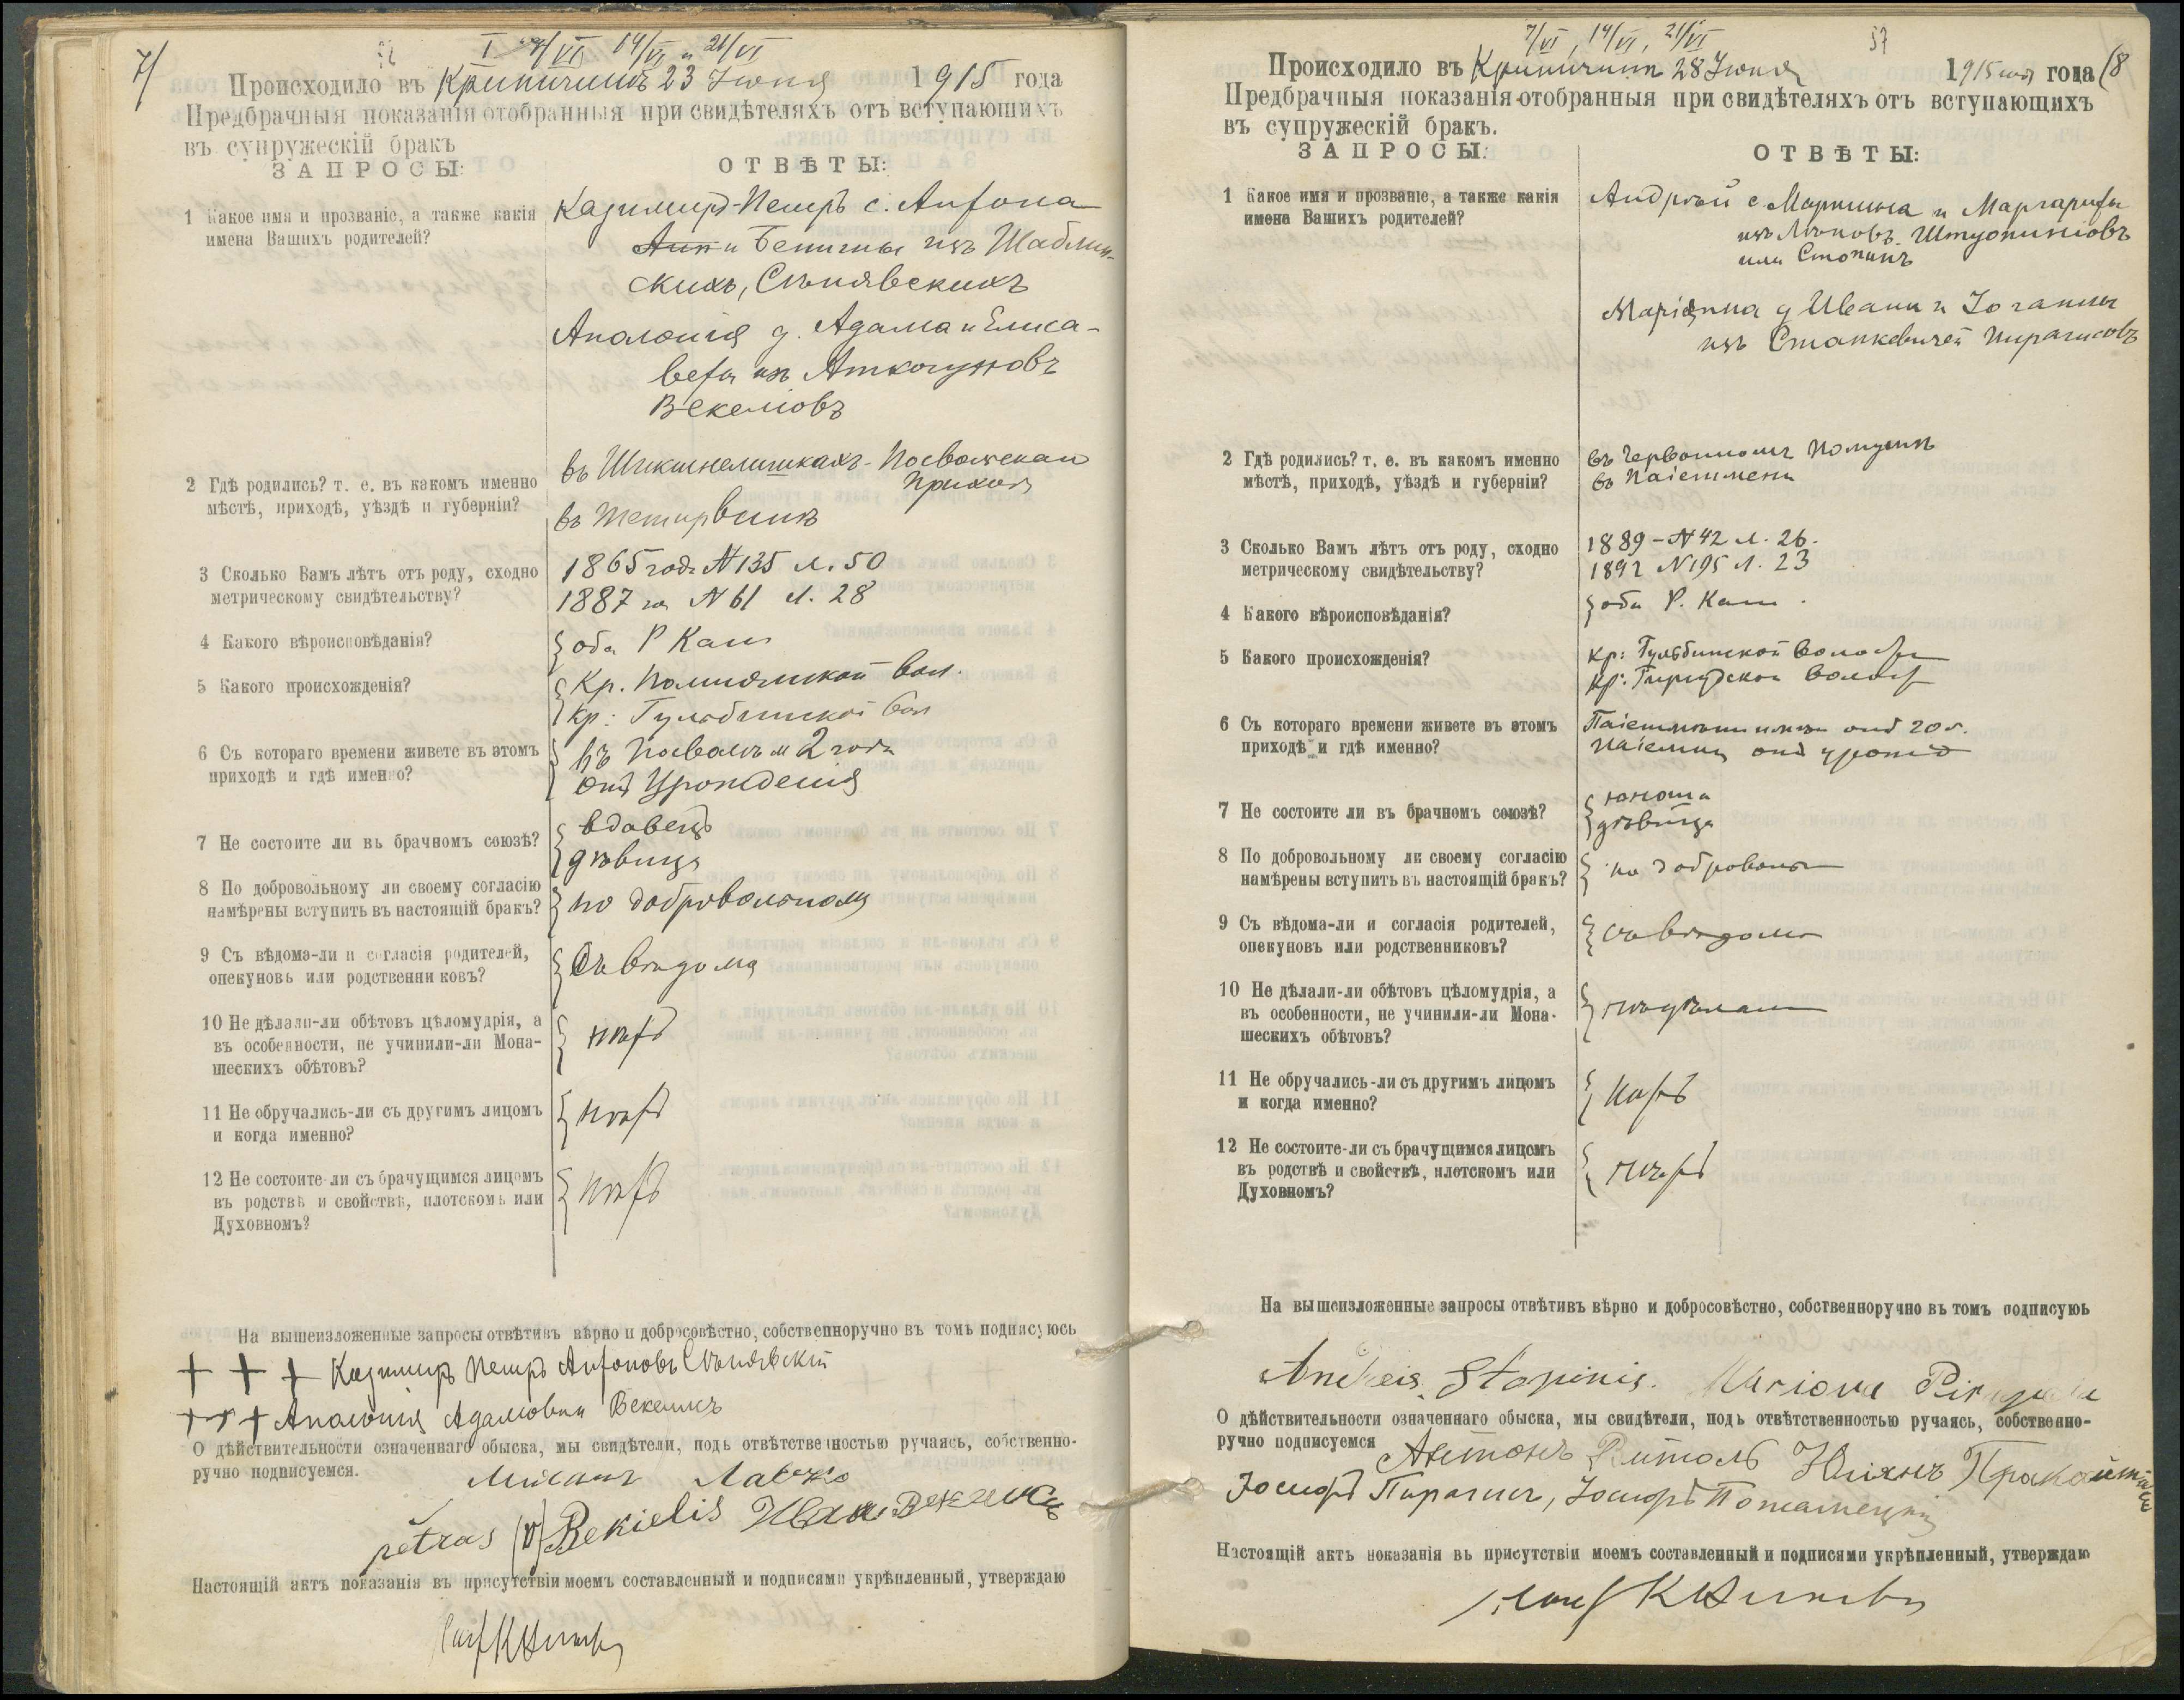 7/
7/VI 14/VI и 21/VI
Происходило въ Криничинѣ 23 Іюня 1915 года
Предбрачныя показанія отобранныя при свидѣтеляхъ отъ вступающихъ
въ супружескій бракъ
ЗАПРОСЫ:
ОТВѢТЫ:
1 Какое имя и прозваніе, а также какія
имена Вашихъ родителей?
Казимиръ-Петръ с. Антона
и Бенигны изъ Шаблин-
скихъ, Сѣнявскихъ
Аполонія д. Адама и Елиса-
веты изъ Аткочуновъ
Векелiовъ
2 Гдѣ родились? т. е. въ какомъ именно
мѣстѣ, приходѣ, уѣздѣ и губерніи?
въ Шикшнелишкахъ - Посвольскаго
Прихода
въ
3 Сколько Вамъ лѣтъ отъ роду, сходно
метрическому свидѣтельству?
1865 года № 135 л. 50
1887 го № 61 л. 28
4 Какого вѣроисповѣданія?
оба Р Кат
5 Какого происхожденія?
Кр. вол.
Кр: Гульбинской вол
6 Съ котораго времени живете въ этомъ
приходѣ и гдѣ именно?
въ 2 года
отъ урожденія
7 Не состоите ли въ брачномъ союзѣ?
вдовецъ
дѣвица
8 По добровольному ли своему согласію
намѣрены вступить въ настоящій бракъ?
по добровольному
9 Съ вѣдома-ли и согласія родителей,
опекуновъ или родственни ковъ?
Съ вѣдома
10 Не дѣлали-ли обѣтовъ цѣломудрія, а
въ особенности, не учинили-ли Мона-
шескихъ обѣтовъ?
нѣтъ
11 Не обручались-ли съ другимъ лицомъ
и когда именно?
нѣтъ
12 Не состоите-ли съ брачущимся лицомъ
въ родствѣ и свойствѣ, плотскомъ или
Духовномъ?
нѣтъ
На вышеизложенные запросы отвѣтивъ вѣрно и добросовѣстно, собственноручно въ томъ подписуюсь
+ + + Казимиръ Петръ Антоновъ Сѣнявскій
+ + + Аполонія Адамовна Векелисъ
О дѣйствительности означеннаго обыска, мы свидѣтели, подъ отвѣтственностью ручаясь, собственно-
ручно подписуемся.
petras (V) Bekielis Иван Векелись
Настоящій актъ показанія въ присутствіи моемъ составленный и подписями укрѣпленный, утверждаю
57
7/VI, 14/VI, 21/VI
Происходило въ Криничинѣ 28 Іюня 1915 года (8
Предбрачныя показанія отобранныя при свидѣтеляхъ отъ вступающихъ
въ супружескій бракъ.
ЗАПРОСЫ:
ОТВѢТЫ:
1 Какое имя и прозваніе, а также какія
имена Вашихъ родителей?
Андрей с Мартина и Маргариты
изъ
или Стопинъ
Маріанна д Ивана и Іоганны
изъ Станкевичей Пирагисовъ
2 Гдѣ родились? т. е. въ какомъ именно
мѣстѣ, приходѣ, уѣздѣ и губерніи?
въ Червонномъ
въ
3 Сколько Вамъ лѣтъ отъ роду, сходно
метрическому свидѣтельству?
1889 - № 42 л. 26.
1892 № 195 л. 23
4 Какого вѣроисповѣданія?
оба Р. Кат.
5 Какого происхожденія?
Кр: Гульбинской волости
Кр: волост
6 Съ котораго времени живете въ этомъ
приходѣ и гдѣ именно?
отъ 20 л.
отъ урожд
7 Не состоите ли въ брачномъ союзѣ?
юноша
дѣвица
8 По добровольному ли своему согласію
намѣрены вступить въ настоящій бракъ?
по доброволь
9 Съ вѣдома-ли и согласія родителей,
опекуновъ или родственниковъ?
съ вѣдома
10 Не дѣлали-ли обѣтовъ цѣломудрія, а
въ особенности, не учинили-ли Мона-
шескихъ обѣтовъ?
не дѣлали
11 Не обручались-ли съ другимъ лицомъ
и когда именно?
нѣтъ
12 Не состоите-ли съ брачущимся лицомъ
въ родствѣ и свойствѣ, плотскомъ или
Духовномъ?
нѣтъ
На вышеизложенные запросы отвѣтивъ вѣрно и добросовѣстно, собственноручно въ томъ подписуюь
Andreis Stopinis. Mariona
О дѣйствительности означеннаго обыска, мы свидѣтели, подъ отвѣтственностью ручаясь, собственно-
ручно подписуемся Антонъ Витоль Юліянъ
Іосифъ Пирагисъ, Іосифъ
Настоящій актъ показанія въ присутствіи моемъ составленный и подписями укрѣпленный, утверждаю